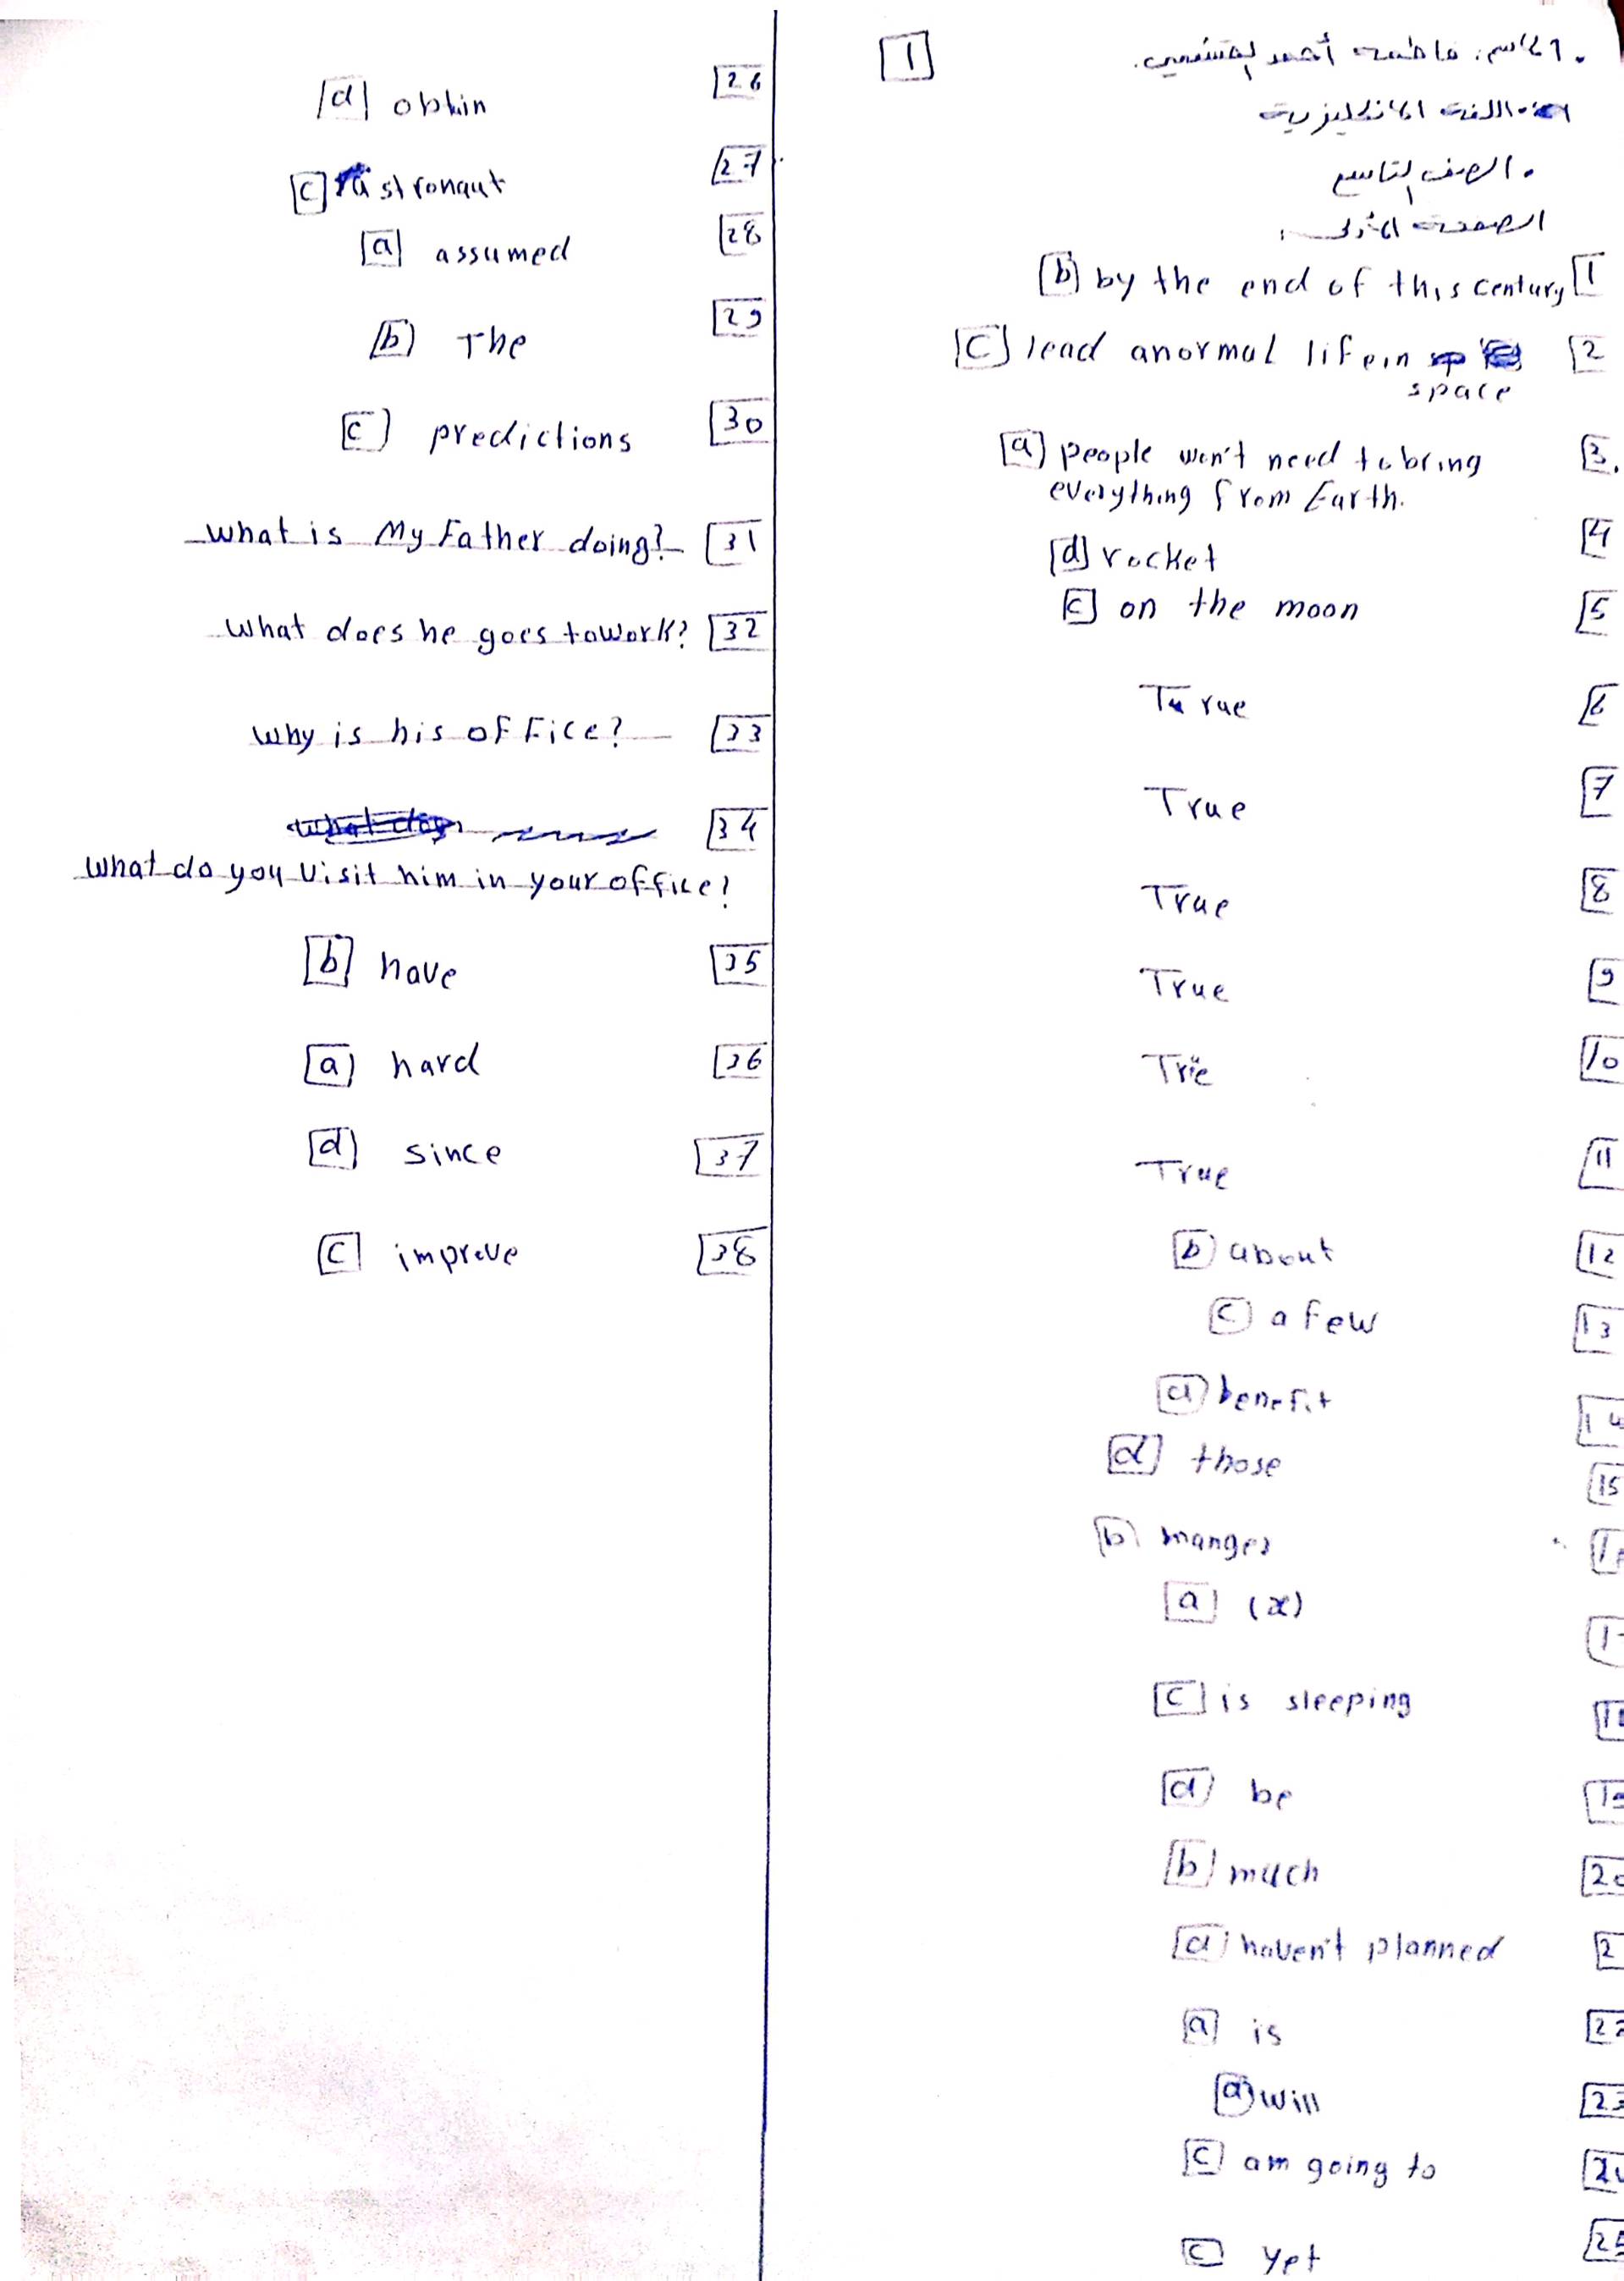 1
الاسم: فاطمة أحمد
اللغة الانكليزية
الصف التاسع
الصفحة الأولى:
1 b by the end of this century
2 c lead anormal life in
space
3. a people won't need to bring
everything from Earth.
4 d rocket
5 c on the moon
6 Turue
7 True
8 True
9 True
10 True
11 True
12 b about
13 c a few
14 a benefit
15 d those
b manges
a (x)
c is sleeping
d be
20 b much
2 a haven't planned
22 a is
23 a will
c am going to
25 c yet
26 d obtin
27 c astronaut
28 a assumed
29 b The
30 c predictions
31 what is My Father doing?
32 what does he goes to work?
33 why is his office?
34
what do you visit him in your office?
35 b have
36 a hard
37 d since
38 c improve